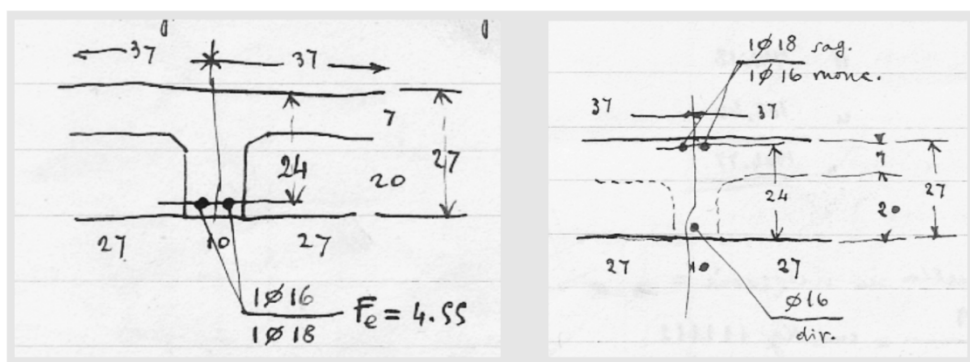 37 37
7
24
27
20
27 10 27
1ø16
1ø18
Fe = 4.55
1ø18 sag.
1ø16 monc.
37 37
7
24
27
20
27 10 27
ø16
dir.